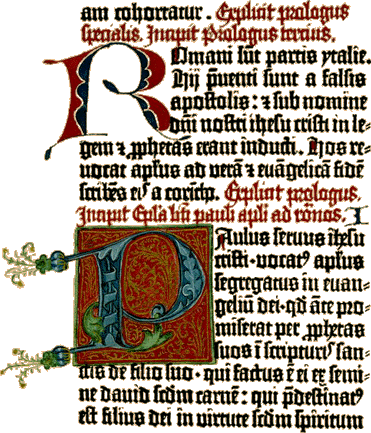 am cohortatur. Explicit prologus
specialis. Incipit Prologus tertius.
Romani sūt partis ytalie.
Hij p̄uenti sunt a falsis
apostolis: ⁊ sub nomine
dn̄i nostri ihesu cristi in le⸗
gem ⁊ ꝓphetas erant inducti. Hos re⸗
uocat apl̄us ad verā ⁊ euāgelicā fidē
scribēs eis a corītho. Explicit prologus.
Incipit Ep̄la btī pauli apl̄i ad rōnos. I
Paulus seruus ihesu
cristi·uocatꝰ apl̄us
segregatus in euan⸗
geliū dei·qd̄ āte pro⸗
miserat per ꝓphetas
suos ī scripturꝭ san⸗
ctis de filio suo·qui factus ē ei ex semi⸗
ne dauid scdm̄ carnē: qui p̄destinatꝰ
est filius dei in virtute scdm̄ spiritum